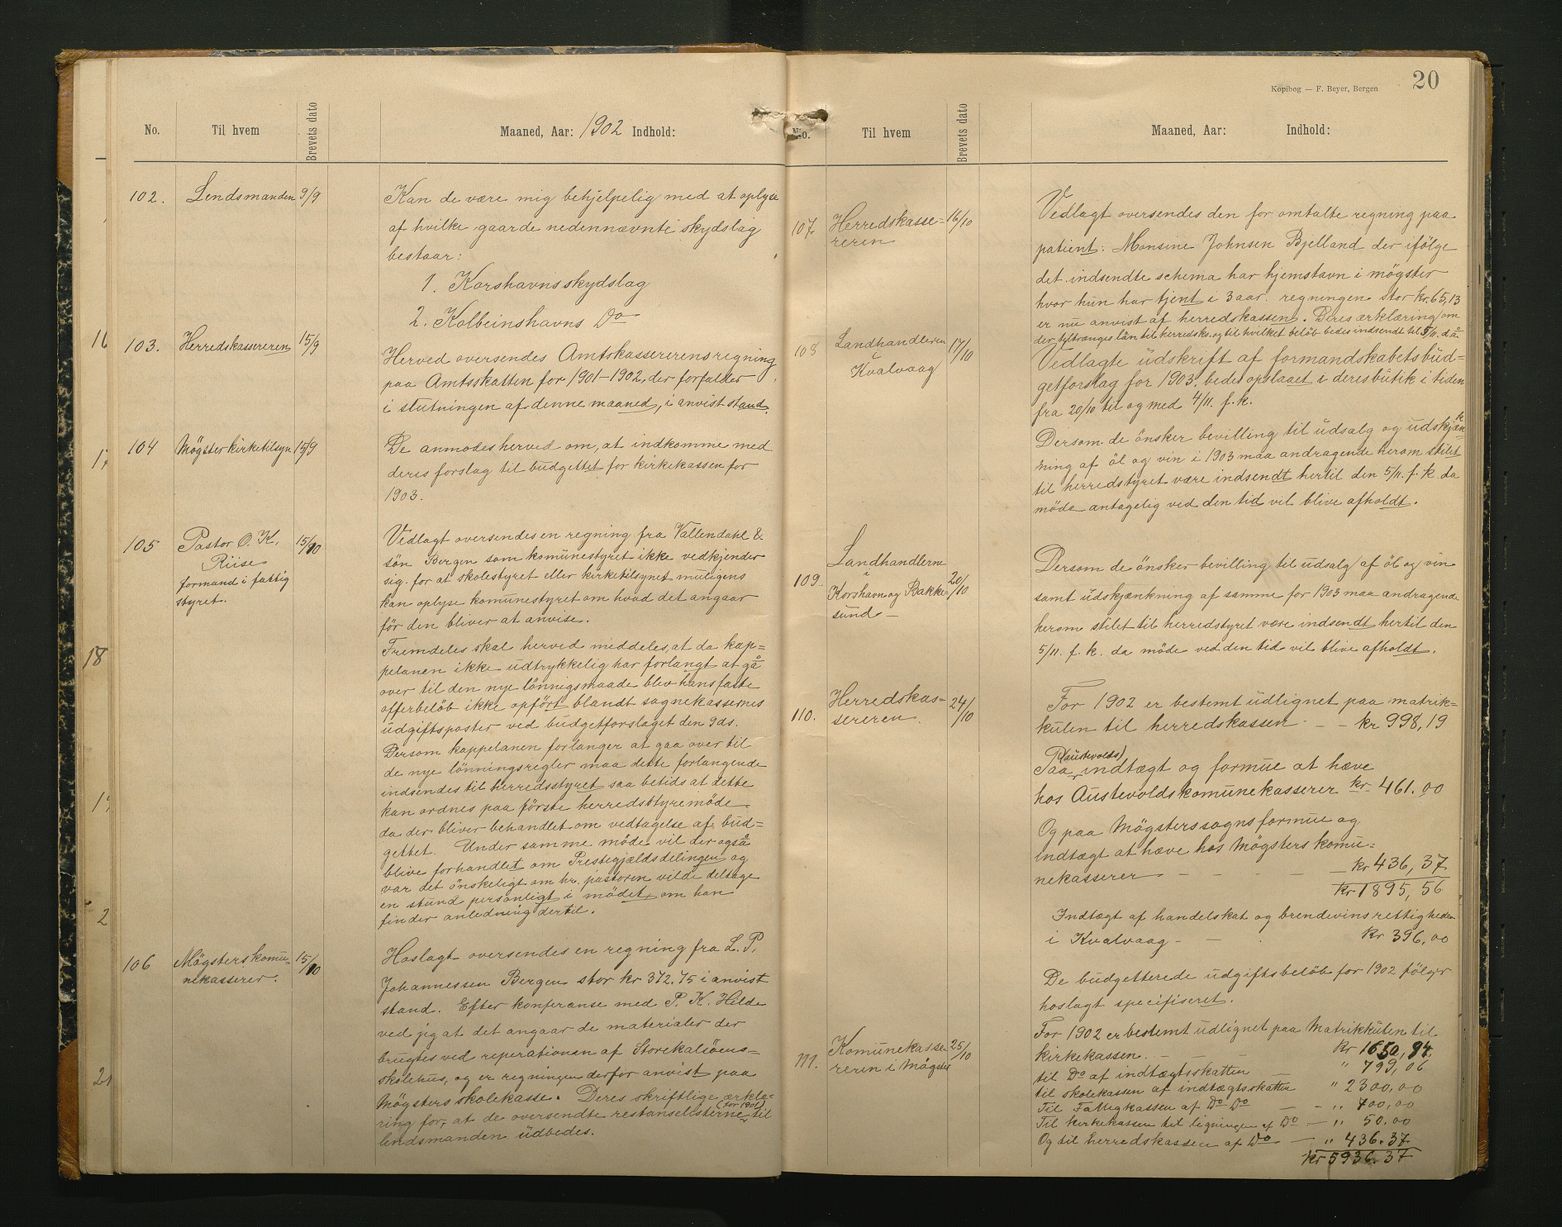 No. Til hvem Brevets dato Maaned, Aar: 1902 Indhold:
102. Lendsmanden 9/9 Kan de være mig behjelpelig med at oplyse
af hvilke gaarde nedennævnte skydslag
bestaar:
1. Korshavnsskydslag
2. Kolbeinshavns Do
103. Herredskassereren 15/9 Herved oversendes Amtskassererens regning
paa Amtsskatten for 1901-1902, der forfalder
i slutningen af denne maaned, i anvist stand.
104 Mögster kirketilsyn 15/9 De anmodes herved om, at indkomme med
deres forslag til budgettet for kirkekassen for
1903.
105 Pastor O. K. Riise formand i fattig styret. 15/10 Vedlagt oversendes en regning fra Vallendahl &
sön Bergen som komunestyret ikke vedkjender
sig. for at skolestyret eller kirketilsynet muligens
kan oplyse komunestyret om hvad det angaar
för den bliver at anvise.
Fremdeles skal herved meddeles, at da kap-
pelanen ikke udtrykkelig har forlangt at gå
over til den nye lönnigsmaade blev hans faste
offerbelöb ikke opfört blandt sognekassernes
udgiftsposter ved budgetforslaget den 9 ds.
Dersom kappelanen forlanger at gaa over til
de nye lönningsregler maa dette forlangende
indsendes til herredsstyret saa betids at dette
kan ordnes paa förste herredsstyremöde
da der bliver behandlet om vedtagelse af bud=
gettet. Under samme möde vil der også
blive forhandlet om Prestegjeldsdelingen og
var det önskeligt om hr. pastoren vilde deltage
en stund personligt i mödet, om han
finder anledning dertil.
106 Mögsters komu-
nekasserer. 15/10 Hoslagt oversendes en regning fra L. P.
Johannessen Bergen stor kr 372,75 i anvist
stand. Efter konferanse med P. K. Hilde
ved jeg at det angaar de materialer der
brugtes ved reperationen af Storekalsöens=
skolehus, og er regningen derfor anvist paa
Mögsters skolekasse. Deres skriftlige erklæ-
ring for, at de oversendte restanselisterne (for 1901) til
lendsmanden udbedes.
Kopibog — F. Beyer, Bergen 20
No. Til hvem Brevets dato Maaned, Aar: Indhold:
107. Herredskasse-
reren 16/10 Vedlagt oversendes den for omtalte regning paa
patient: Monsine Johnsen Bjelland der ifölge
det indsendte schema har hjemstavn i mögster
hvor hun har tjent i 3 aar. regningen stor kr 65,13
er nu anvist af herredskassen. Deres erklæring om
der tiltrænges lån til herredsks. og til hvilket belöb bedes indsendt til 5/11. d.å.
108 Landhandleren
i
Kvalvaag 17/10 Vedlagte udskrift af formandskabets bud=
getforslag for 1903. bedes opslaaet i deres butik i tiden
fra 20/10 til og med 4/11. f. k.
Dersom de önsker bevilling til udsalg og udskjæn-
kning af öl og vin i 1903 maa andragende herom stilet
til herredstyret være indsendt hertil den 5/11. f. k. da
möde antagelig ved den tid vil blive afholdt.
109. Landhandlerne
i
Korshavn og Bakke-
sund 20/10 Dersom de önsker bevilling til udsalg af öl og vin
samt udskjænkning af samme for 1903 maa andragende
herom stilet til herredstyret være indsendt hertil den
5/11. f. k. da möde ved den tid vil blive afholdt.
110. Herredskas-
sereren. 24/10 For 1902 er bestemt udlignet paa matrik-
kulen til herredskassen - - kr 998,19
Paa (Austevolds) indtægt og formue at hæve
hos Austevolds komunekasserer kr 461.00
Og paa Mögsters sogns formue og
Indtægt at hæve hos Mögsters komu=
nekasserer - - - - kr 436,37
kr 1895,56
Indtægt af handelskat og brendevinsrettigheden
i Kvalvaag - - kr 396,00
De budgetterede udgiftsbelöb for 1902 fölger
hoslagt specifiseret.
111. Komunekasse-
reren i Mögster 25/10 For 1902 er bestemt udlignet paa Matrikkulen til
kirkekassen. - - kr 1650,94.
til Do af indtægtsskatten - " 799,06
til skolekassen af indtægtsskatten " 2300,00
Til Fattigkassen af Do Do - - " 700,00
Til kirkekassen til ligningen af Do - " 50.00
Og til herredskassen af Do - " 436.37
kr 5936.37